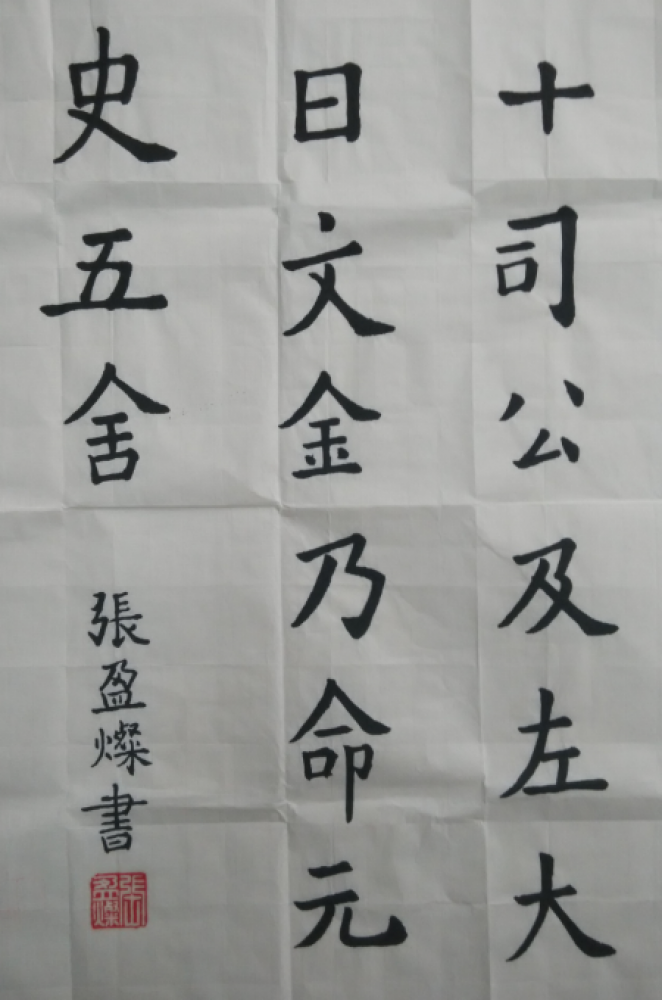 十司公及左大
日文金乃命元
史五舍
張盈燦書
張盈燦